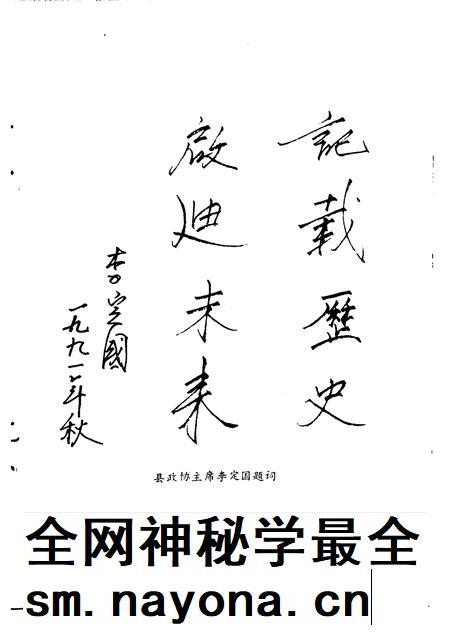 記載歷史
啟迪未来
李定國
一九九一年秋
县政协主席李定国题词
全网神秘学最全
sm.nayona.cn